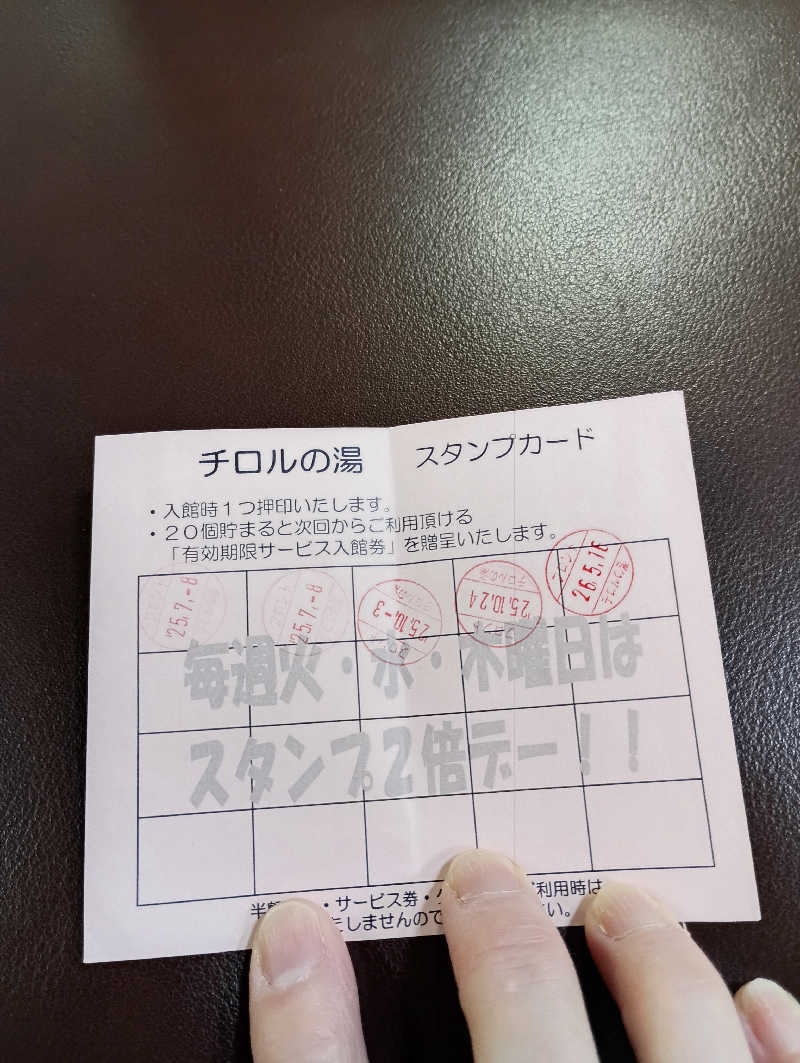 チロルの湯 スタンプカード
・入館時1つ押印いたします。
・20個貯まると次回からご利用頂ける
「有効期限サービス入館券」を贈呈いたします。
'25.7.-8
'25.7.-8
'25.10.-3
'25.10.24
26.5.16
チロルの湯
毎週火・水・木曜日は
スタンプ2倍デー!!
・サービス券・ 利用時は
たしませんので い。